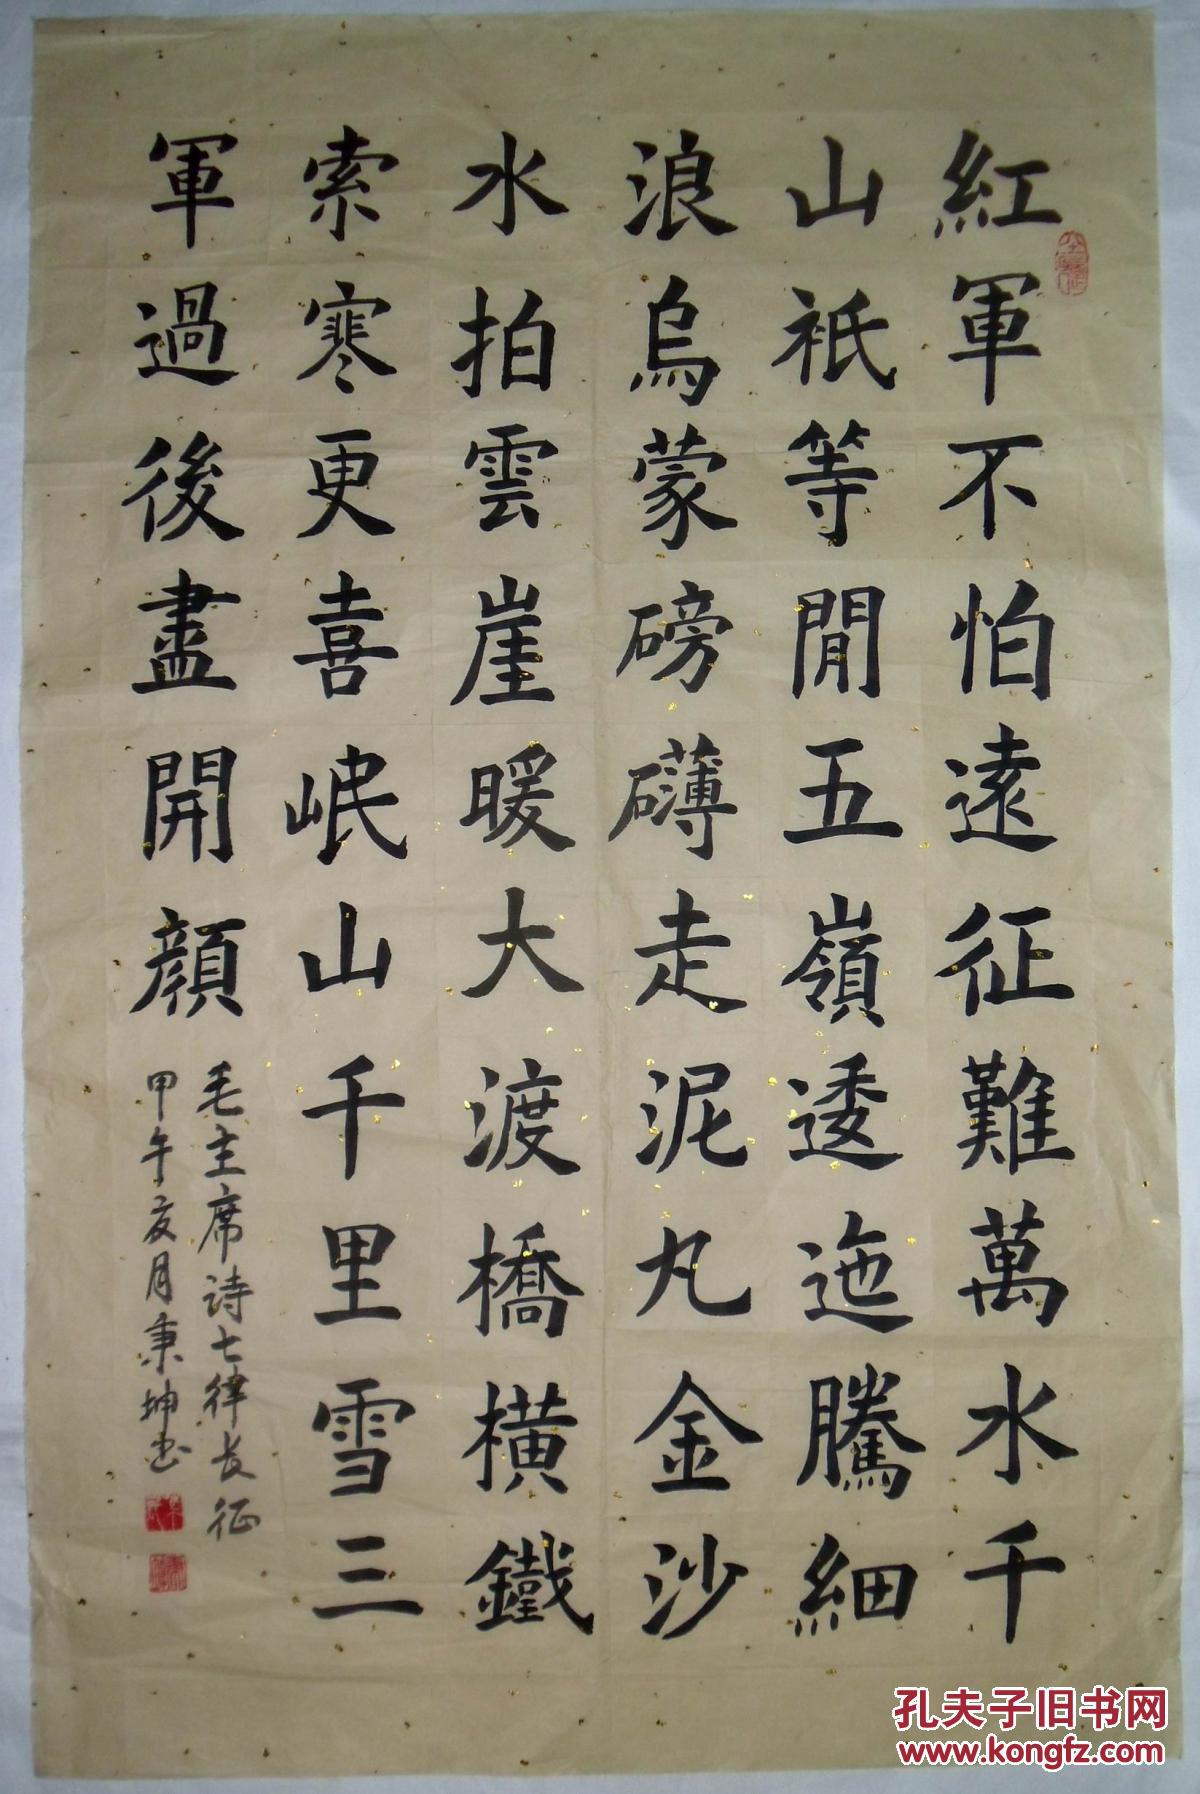 紅軍不怕遠征難萬水千
山祇等閒五嶺逶迤騰細
浪烏蒙磅礴走泥丸金沙
水拍雲崖暖大渡橋橫鐵
索寒更喜岷山千里雪三
軍過後盡開顏
毛主席诗七律长征
甲午亥月秉坤书
孔夫子旧书网
www.kongfz.com